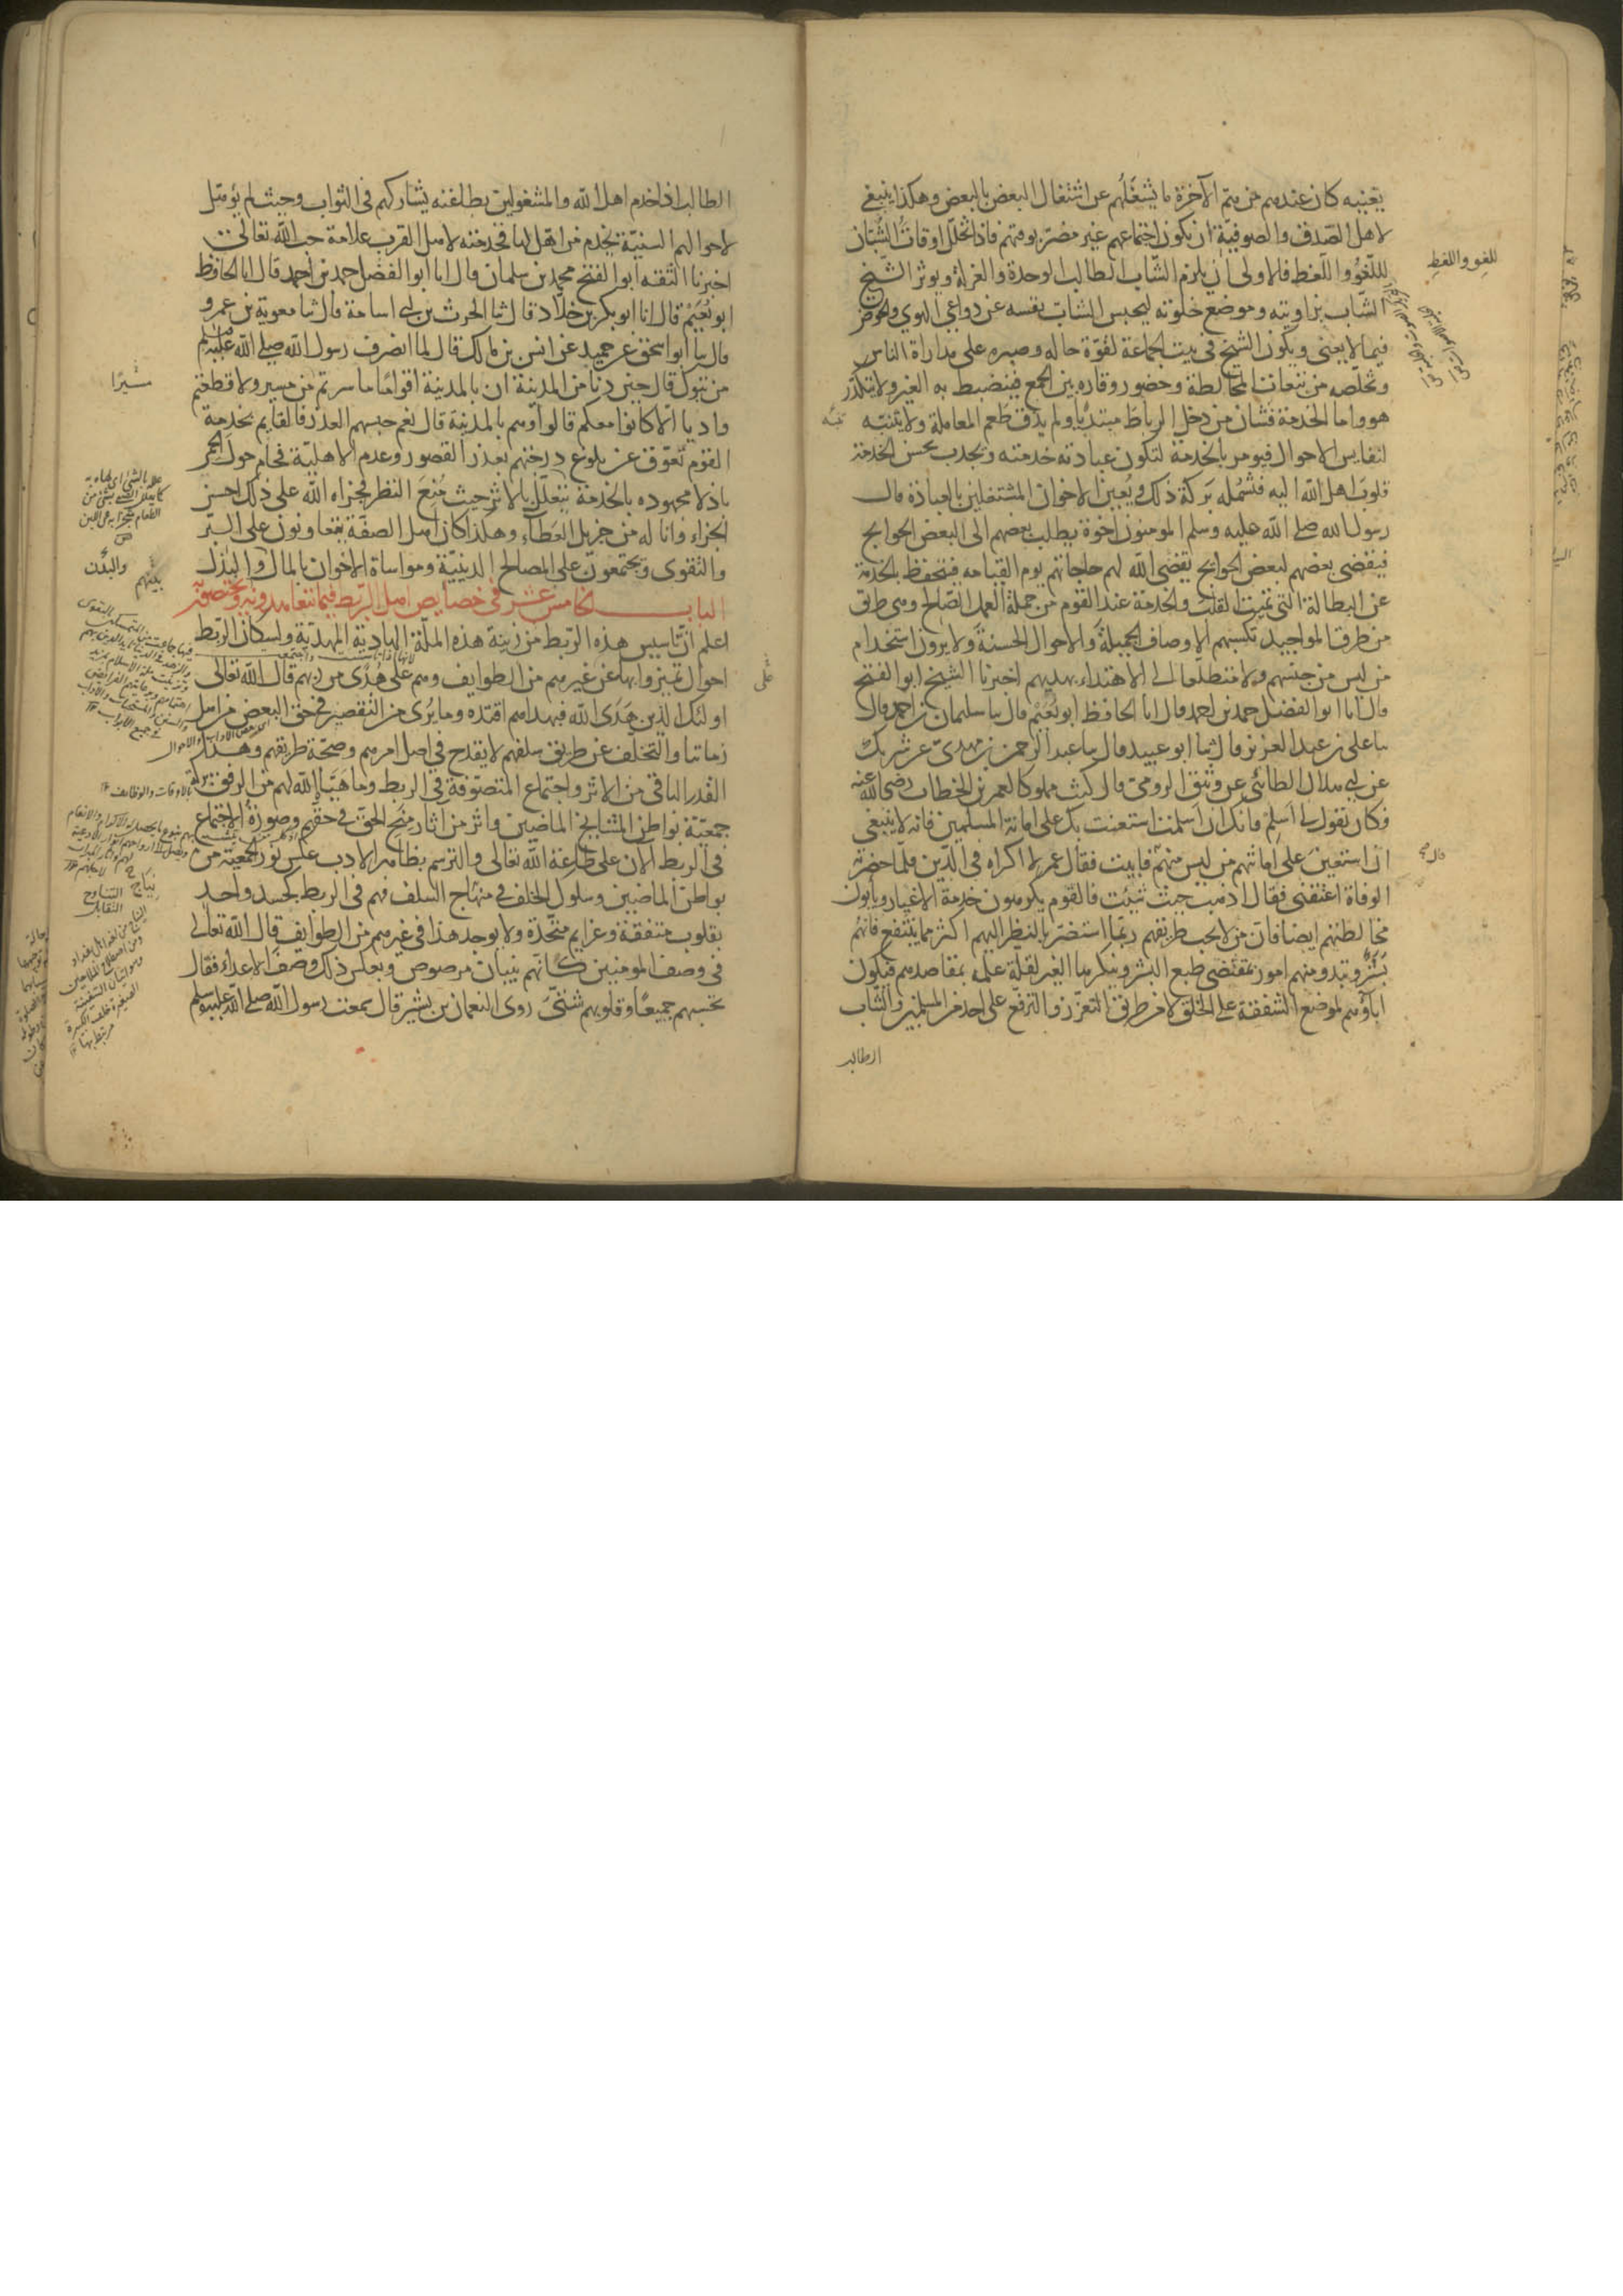 يعنيه كان عندهم من هم الآخرة ما يشغلهم عن اشتغال البعض بالبعض وهكذا ينبغي
لاهل الصدق والصوفية ان يكون اجتماعهم غير مضر بوقتهم فاذا تخلل اوقات الشبان
اللغو واللغط فالاولى ان يلزم الشاب الطالب الوحدة والعزلة ويوثر الشيخ
الشاب بزاويته وموضع خلوته ليحبس الشاب نفسه عن دواعي الهوى والخوض
فيما لا يعنى ويكون الشيخ في بيت الجماعة لقوة حاله وصبره على مداراة الناس
وتخلصه من تبعات المخالطة وحضور وقاره بين الجمع فينضبط به الغير ولا يتكدر
هو واما الخدمة فشان من دخل الرباط مبتديا ولم يذق طعم المعاملة ولا يتنبه
لنفايس الاحوال فيومر بالخدمة لتكون عبادته خدمته ويجذب بحسن الخدمة
قلوب اهل الله اليه فتشمله بركة ذلك ويعين الاخوان المشتغلين بالعبادة قال
رسول الله صلى الله عليه وسلم المومنون اخوة يطلب بعضهم الى البعض الحوايج
فيقضى بعضهم لبعض الحوايج يقضى الله لهم حاجاتهم يوم القيامه فيتحفظ بالخدمة
عن البطالة التي تميت القلب والخدمة عند القوم من جملة العمل الصالح وهي طريق
من طرق المواجيد تكسبهم الاوصاف الجميلة والاحوال الحسنة ولا يرون استخدام
من ليس من جنسهم ولا متطلعا الى الاهتداء بهديهم اخبرنا الشيخ ابو الفتح
قال انا ابو الفضل حمد بن احمد قال انا الحافظ ابو نعيم قال ثنا سليمان بن احمد قال
ثنا على بن عبد العزيز قال ثنا ابو عبيد قال ثنا عبد الرحمن بن مهدي عن شريك
عن ابي هلال الطائي عن وثيق الرومي قال كنت مملوكا لعمر بن الخطاب رضي الله عنه
فكان يقول لي اسلم فانك ان اسلمت استعنت بك على امانة المسلمين فانه لا ينبغي
ان استعين على امانتهم من ليس منهم فابيت فقال عمر لا اكراه في الدين فلما حضرته
الوفاة اعتقني فقال اذهب حيث شيت فالقوم يكرهون خدمة الاغيار ويابون
مخالطتهم ايضا فان من لا يحب طريقهم ربما استضر بالنظر اليهم اكثر مما ينتفع فانهم
بشر وتبدو منهم امور بمقتضى طبع البشر وينكرها الغير لقلة علمه بمقاصدهم فيكون
اباؤهم لموضع الشفقة على الخلق لا من طريق التعزز والترفع على احد من المسلمين والشاب
الطالب
للغو واللغط
الطالب اذا خدم اهل الله والمشغولين بطاعته يشاركهم في الثواب وحيث لم يؤهل
لاحوالهم السنية يخدم من اهل لها فخدمته لاهل القرب علامة حب الله تعالى
اخبرنا الثقه ابو الفتح محمد بن سلمان قال انا ابو الفضل حمد بن احمد قال انا الحافظ
ابو نعيم قال انا ابو بكر بن خلاد قال ثنا الحرث بن ابي اسامة قال ثنا معوية بن عمرو
قال ثنا ابو اسحق عن حميد عن انس بن مالك قال لما انصرف رسول الله صلى الله عليه وسلم
من تبوك قال حين دنا من المدينة ان بالمدينة اقواما ما سرتم من مسير ولا قطعتم
واديا الا كانوا معكم قالوا وهم بالمدينة قال نعم حبسهم العذر فالقايم بخدمة
القوم تعوق عن بلوغ درجتهم بعذر القصور وعدم الاهلية فحام حول الحمى
باذلا مجهوده بالخدمة يتعلل بالاثر حيث منع النظر فجزاه الله على ذلك احسن
الجزاء وانا له من جزيل العطاء وهكذا كان اهل الصفة يتعاونون على البر
والتقوى ويجتمعون على المصالح الدينية ومواساة الاخوان بالمال والبذل
الباب الخامس عشر في خصايص اهل الربط فيما يتعاهدونه ويختصون
اعلم ان تاسيس هذه الربط من زينة هذه الملة الهادية المهدية ولسكان الربط
احوال تميزوا بها عن غيرهم من الطوايف وهم على هدى من ربهم قال الله تعالى
اولئك الذين هدى الله فبهداهم اقتده وما يرى من التقصير في حق البعض من اهل
زماننا والتخلف عن طريق سلفهم لا يقدح في اصل امرهم وصحة طريقهم وهذا
القدر الباقي من الاثر واجتماع المتصوفة في الربط وما هيا الله لهم من الرفق بركة
جمعية بواطن المشايخ الماضين واثر من اثار منح الحق في حقهم وصورة الاجتماع
في الربط الان على طاعة الله تعالى والترسم بظاهر الادب عكس نور الجمعية من
بواطن الماضين وسلوك الخلف في منهاج السلف فهم في الربط كجسد واحد
بقلوب متفقة وعزايم متحدة ولا يوجد هذا في غيرهم من الطوايف قال الله تعالى
في وصف المومنين كانهم بنيان مرصوص وبعكس ذلك وصف الاعداء فقال
تحسبهم جميعا وقلوبهم شتى روى النعمان بن بشير قال سمعت رسول الله صلى الله عليه وسلم
مسيرا
والبدن
على